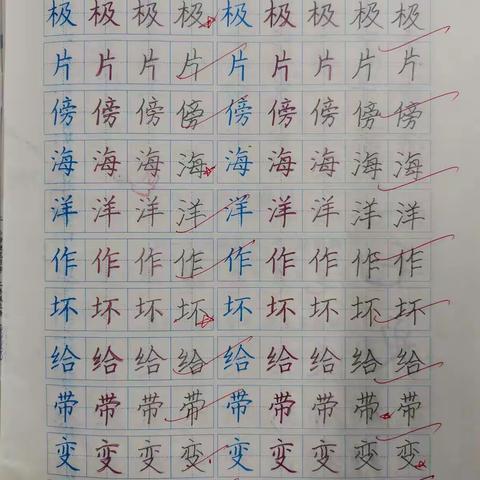 极极极极极极极极极
片片片片片片片片片
傍傍傍傍傍傍傍傍傍
海海海海海海海海海
洋洋洋洋洋洋洋洋洋
作作作作作作作作作
坏坏坏坏坏坏坏坏坏
给给给给给给给给给
带带带带带带带带带
变变变变变变变变变